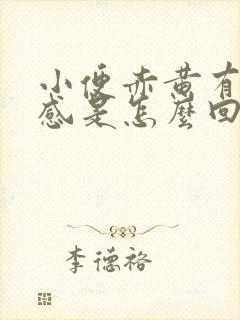 小便赤黄有
感是怎麼回
李德裕